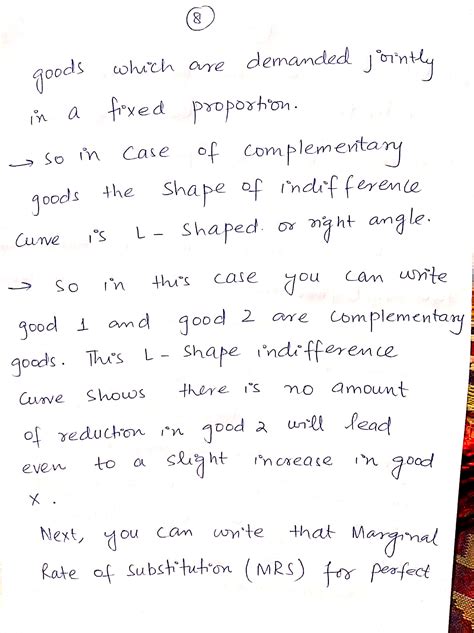 8
goods which are demanded jointly
in a fixed proportion.
→ So in case of complementary
goods the shape of indifference
curve is L - shaped. or right angle.
→ So in this case you can write
good 1 and good 2 are complementary
goods. This L - shape indifference
curve shows there is no amount
of reduction in good 2 will lead
even to a slight increase in good
x .
Next, you can write that Marginal
Rate of Substitution (MRS) for perfect